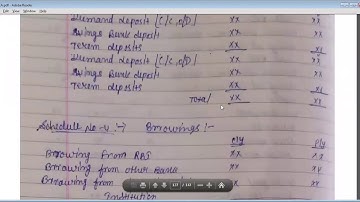 Demand deposit [C/C, O/D] xx xx
Svings Bank deposit xx xx
Terem deposits xx xx
Demand deposit [C/C, O/D] xx xx
Svings Bank deposit xx xx
Terem deposits xx xx
Total xx xx
Schedule No-4 :-) Brrowings :-
Ply Ply
Brrowing From RBI xx xx
Brrowing from other Bank xx xx
Brrowing from xx xx
Institution